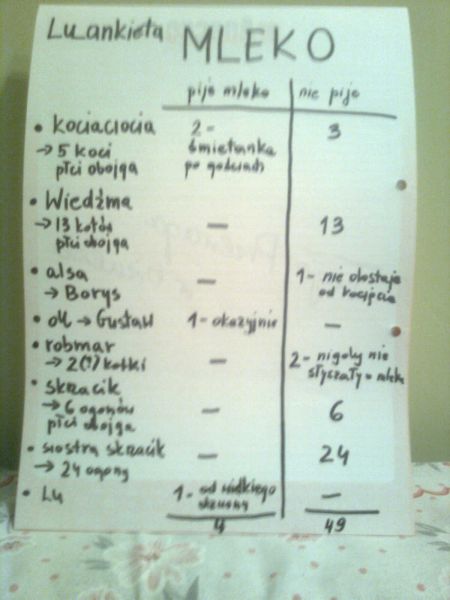 Lu_ankieta MLEKO
pije mleko nie pije
• kociaciocia 2- 3
→ 5 koci śmietanka
płci obojga po gościach
• Wiedźma
→ 13 kotów — 13
płci obojga
• alsa — 1- nie dostaje
→ Borys od kocięcia
• oll → Gustaw 1- okazyjnie —
• robmar
→ 2(?) kotki — 2- nigdy nie
słyszały o mleku
• skrzacik
→ 6 ogonów — 6
płci obojga
• siostra skrzacik — 24
→ 24 ogony
• Lu 1- od wielkiego —
4 49